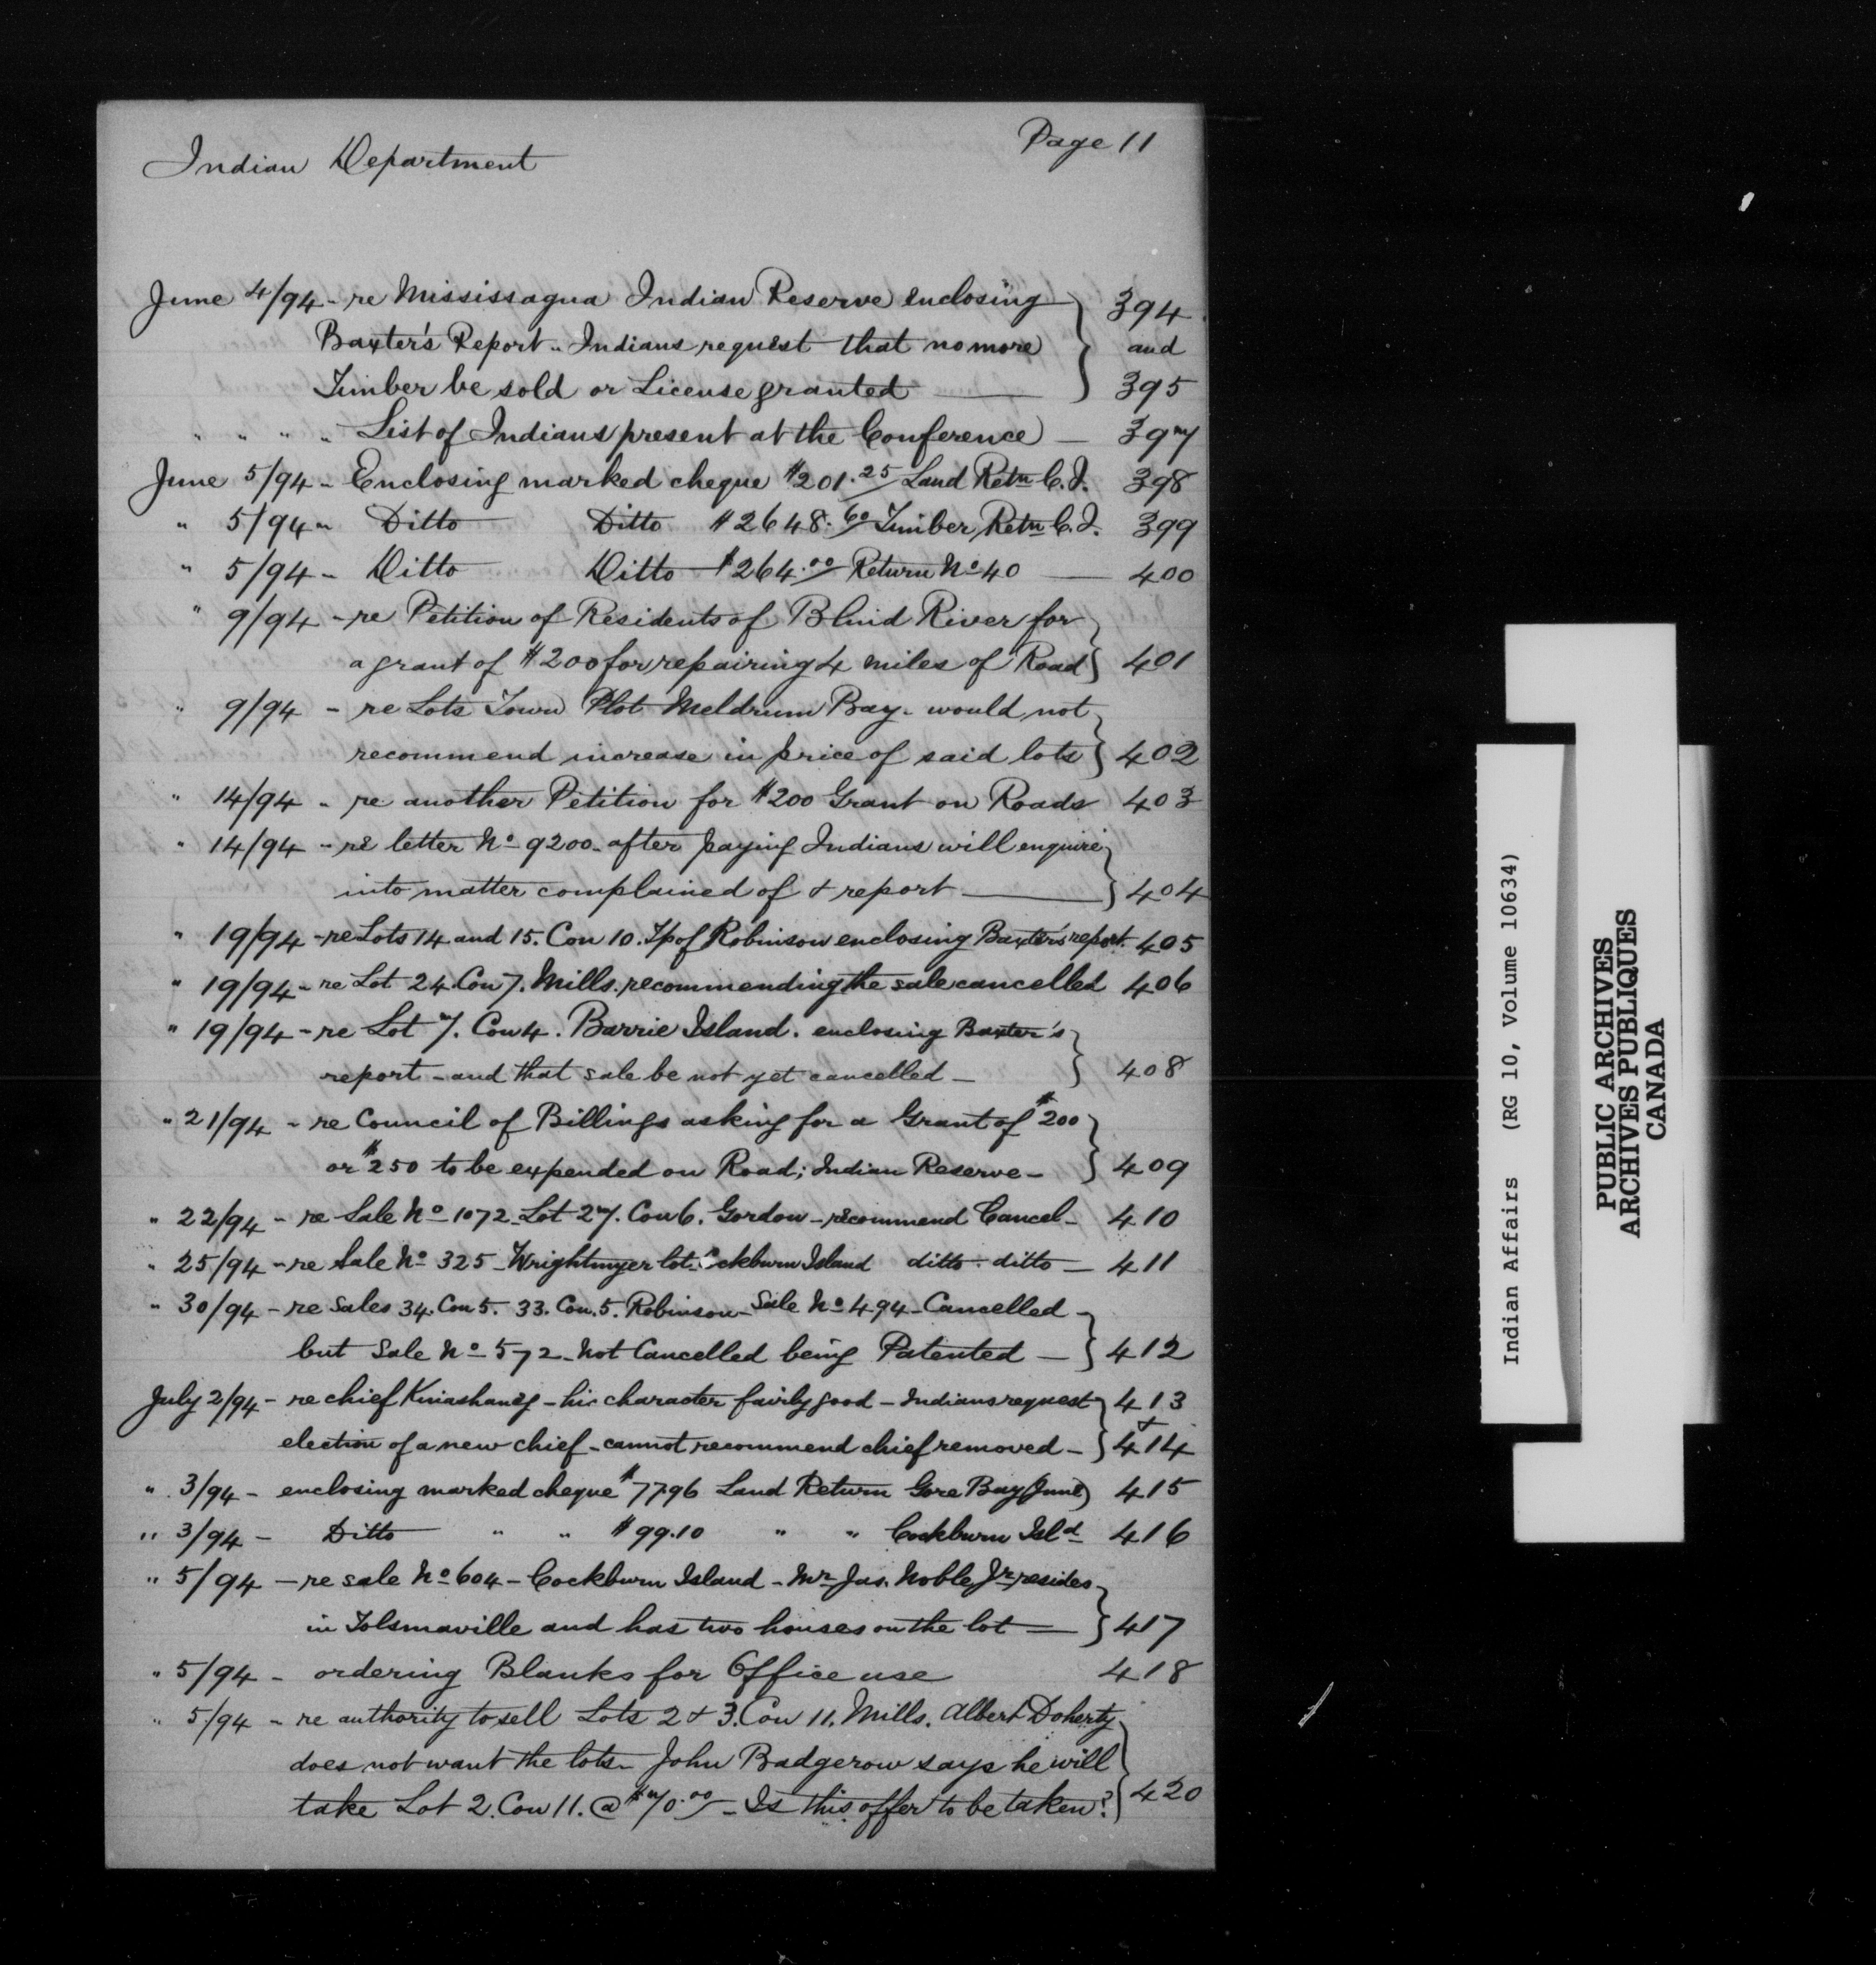 Page 11
Indian Department
June 4/94 - re Mississagua Indian Reserve enclosing } 394
Baxter's Report .. Indians request that no more } and
Timber be sold or License granted — } 395
" " " " List of Indians present at the Conference — 397
June 5/94 - Enclosing marked cheque $201.25 Land Retn C.I. 398
" 5/94 - Ditto Ditto $2648.60 Timber Retn C.I. 399
" 5/94 - Ditto Ditto $264.00 Return No 40 — 400
" 9/94 - re Petition of Residents of Blind River for }
a grant of $200 for repairing 4 miles of Road } 401
" 9/94 - re Lots Town Plot Meldrum Bay - would not }
recommend increase in price of said lots } 402
" 14/94 - re another Petition for $200 Grant on Roads 403
" 14/94 - re letter No 9200 - after paying Indians will enquire }
into matter complained of & report — } 404
" 19/94 - re Lots 14 and 15. Con 10. Tp of Robinson enclosing Baxter's report. 405
" 19/94 - re Lot 24. Con 7. Mills. recommending the sale cancelled 406
" 19/94 - re Lot 7. Con 4. Barrie Island. enclosing Baxter's }
report - and that sale be not yet cancelled - } 408
" 21/94 - re Council of Billings asking for a Grant of $200 }
or $250 to be expended on Road; Indian Reserve - } 409
" 22/94 - re Sale No 1072 - Lot 27. Con 6. Gordon - recommend Cancel - 410
" 25/94 - re Sale No 325 - Wrightmyer lot. Cockburn Island ditto . ditto — 411
" 30/94 - re Sales 34. Con 5. 33. Con. 5. Robinson - Sale No 494 - Cancelled - }
but Sale No 572 - Not Cancelled being Patented — } 412
July 2/94 - re chief Kinashaneg - his character fairly good - Indians request } 413
election of a new chief - cannot recommend chief removed - } & 414
" 3/94 - enclosing marked cheque $77.96 Land Return Gore Bay (June) 415
" 3/94 - Ditto " " $99.10 " " Cockburn Isld 416
" 5/94 - re sale No 604 - Cockburn Island - Mr Jas. Noble Jr resides }
in Tolsmaville and has two houses on the lot — } 417
" 5/94 - ordering Blanks for Office use 418
" 5/94 - re authority to sell Lots 2 & 3. Con 11. Mills. Albert Doherty }
does not want the lots - John Badgerow says he will }
take Lot 2. Con 11. @ $70.00 - Is this offer to be taken? } 420
Indian Affairs (RG 10, Volume 10634)
PUBLIC ARCHIVES
ARCHIVES PUBLIQUES
CANADA